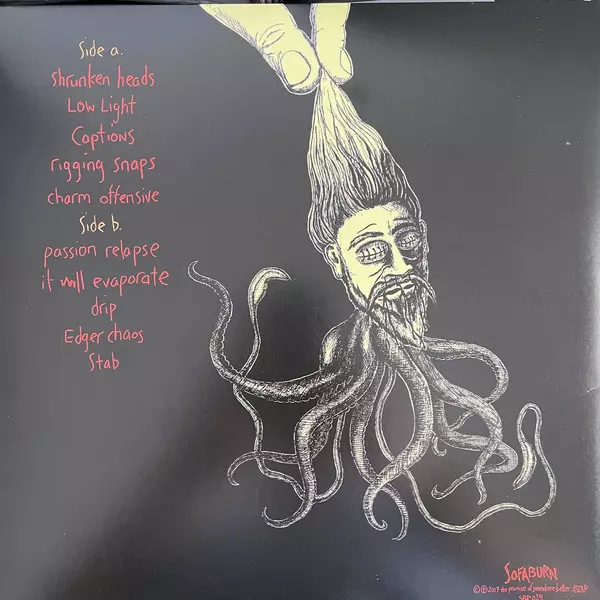 Side a.
shrunken heads
Low Light
Captions
rigging snaps
charm offensive
Side b.
passion relapse
it will evaporate
drip
Edger chaos
Stab
SOFABURN
©℗2017 the promise of somewhere better ASCAP
SBR 029